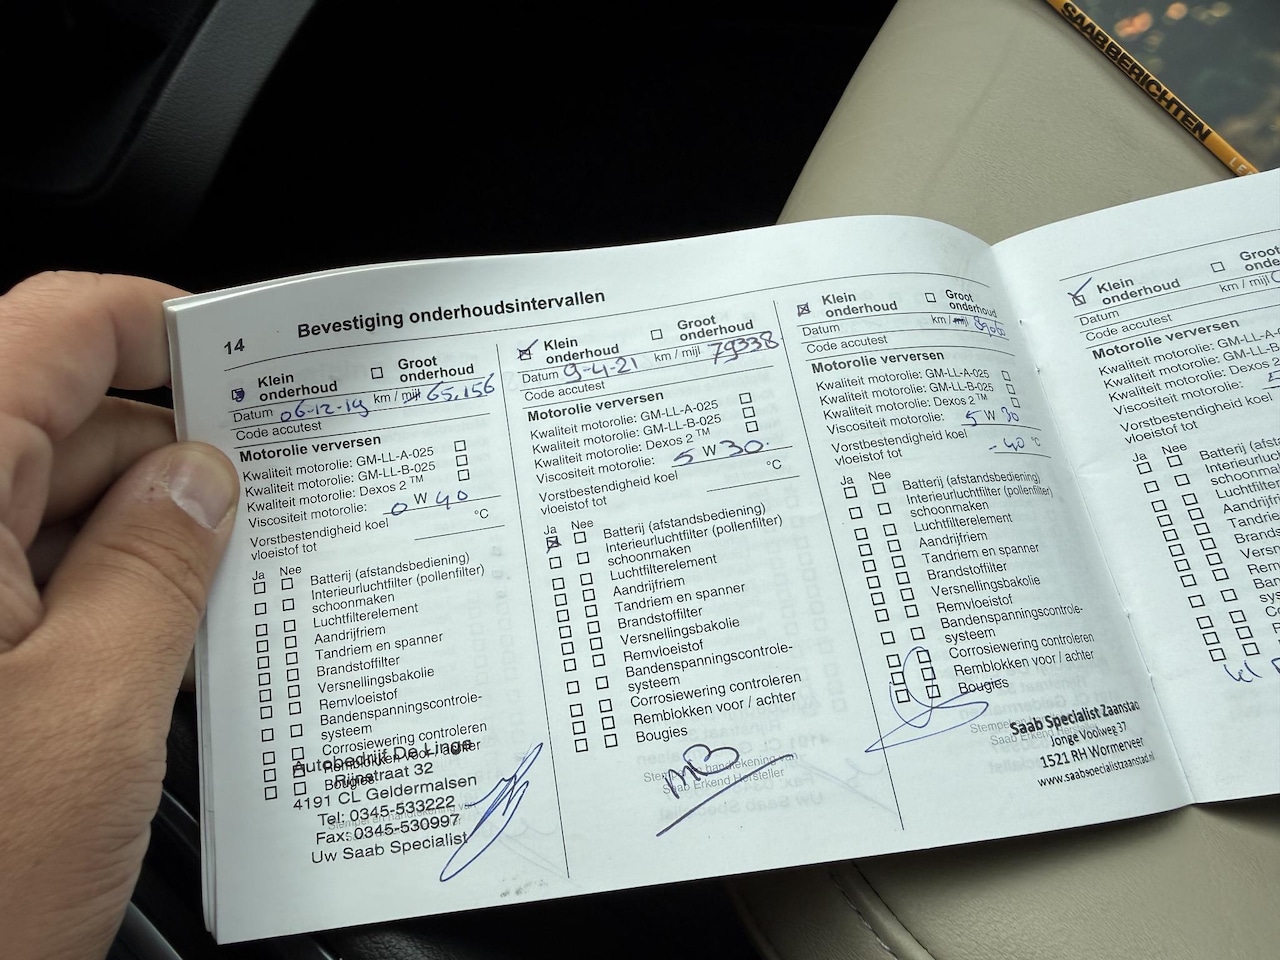 SAAB BERICHTEN
14
Bevestiging onderhoudsintervallen
Klein onderhoud
Groot onderhoud
Datum 06-12-19 km / mijl 65.156
Code accutest
Motorolie verversen
Kwaliteit motorolie: GM-LL-A-025
Kwaliteit motorolie: GM-LL-B-025
Kwaliteit motorolie: Dexos 2 ™
Viscositeit motorolie: 0 W 40
Vorstbestendigheid koel
vloeistof tot °C
Ja Nee
Batterij (afstandsbediening)
Interieurluchtfilter (pollenfilter)
schoonmaken
Luchtfilterelement
Aandrijfriem
Tandriem en spanner
Brandstoffilter
Versnellingsbakolie
Remvloeistof
Bandenspanningscontrole-
systeem
Corrosiewering controleren
Remblokken voor / achter
Bougies
Autobedrijf De Linge
Rijnstraat 32
4191 CL Geldermalsen
Tel: 0345-533222
Fax: 0345-530997
Uw Saab Specialist
Klein onderhoud
Groot onderhoud
Datum 9-4-21 km / mijl 79338
Code accutest
Motorolie verversen
Kwaliteit motorolie: GM-LL-A-025
Kwaliteit motorolie: GM-LL-B-025
Kwaliteit motorolie: Dexos 2 ™
Viscositeit motorolie: 5 W 30.
Vorstbestendigheid koel
vloeistof tot °C
Ja Nee
Batterij (afstandsbediening)
Interieurluchtfilter (pollenfilter)
schoonmaken
Luchtfilterelement
Aandrijfriem
Tandriem en spanner
Brandstoffilter
Versnellingsbakolie
Remvloeistof
Bandenspanningscontrole-
systeem
Corrosiewering controleren
Remblokken voor / achter
Bougies
Stempel en handtekening van
Saab Erkend Hersteller
Klein onderhoud
Groot onderhoud
Datum km / mijl
Code accutest
Motorolie verversen
Kwaliteit motorolie: GM-LL-A-025
Kwaliteit motorolie: GM-LL-B-025
Kwaliteit motorolie: Dexos 2 ™
Viscositeit motorolie: 5 W 30
Vorstbestendigheid koel
vloeistof tot -40 °C
Ja Nee
Batterij (afstandsbediening)
Interieurluchtfilter (pollenfilter)
schoonmaken
Luchtfilterelement
Aandrijfriem
Tandriem en spanner
Brandstoffilter
Versnellingsbakolie
Remvloeistof
Bandenspanningscontrole-
systeem
Corrosiewering controleren
Remblokken voor / achter
Bougies
Saab Specialist Zaanstad
Jonge Voolweg 37
1521 RH Wormerveer
www.saabspecialistzaanstad.nl
Klein onderhoud
Groot
Datum km / mijl
Code accutest
Motorolie verversen
Kwaliteit motorolie: GM-LL-A
Kwaliteit motorolie: GM-LL-B
Kwaliteit motorolie: Dexos 2
Viscositeit motorolie: 5
Vorstbestendigheid koel
vloeistof tot
Ja Nee
Batterij (afstandsb
Interieurluchtfilter
schoonmaken
Luchtfiltere
Aandrijfrie
Tandrie
Brands
Versn
Rem
Ban
sys